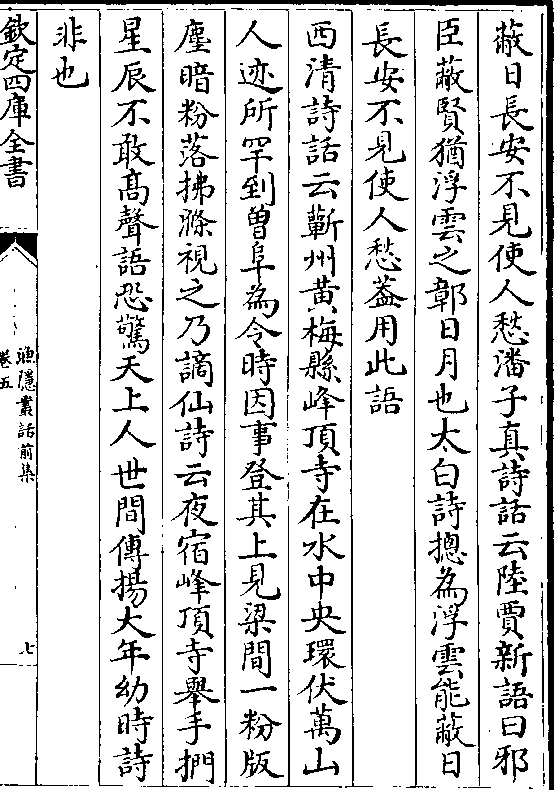 蔽日長安不見使人愁潘子真詩話云陸賈新語曰邪
臣蔽賢猶浮雲之鄣日月也太白詩摠為浮雲能蔽日
長安不見使人愁葢用此語
西清詩話云蘄州黄梅縣峰頂寺在水中央環伏萬山
人迹所罕到曽阜為令時因事登其上見梁間一粉版
塵暗粉落拂滌視之乃謫仙詩云夜宿峰頂寺舉手捫
星辰不敢髙聲語恐驚天上人世間傳揚大年幼時詩
非也
欽定四庫全書
漁隱叢話前集
卷五
七